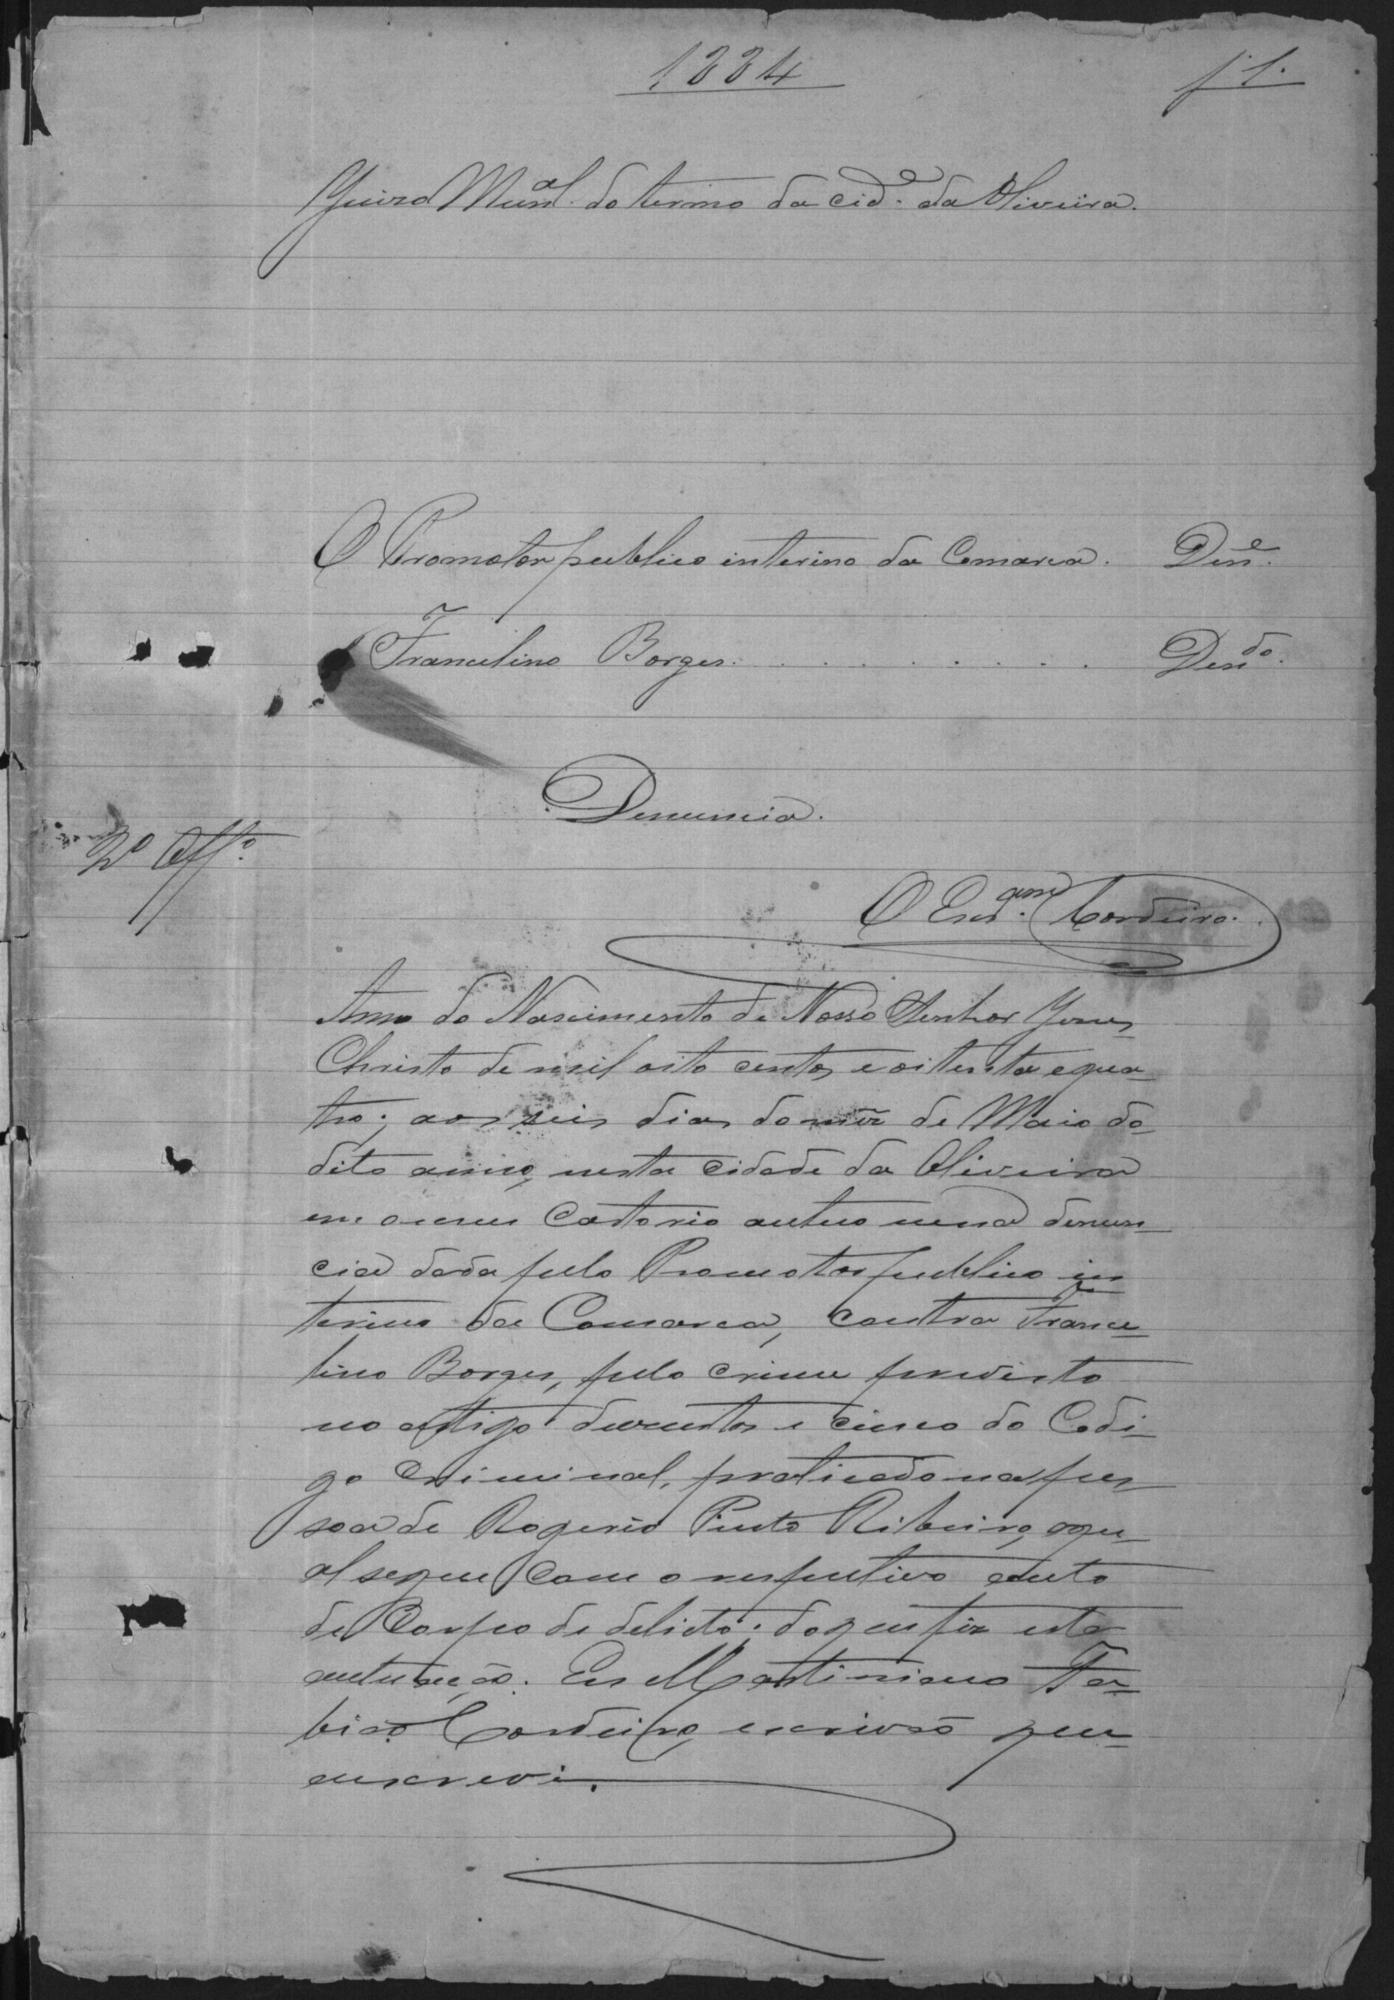 1884
f 1.
Juizo Mun.al do termo da cid.e da Oliveira.
O Promotor publico interino da Comarca. Den.e
Francelino Borges. . . . . . . . . . Den.do
Denuncia.
2º Off.o
O Escr.am Cordeiro.
Anno do Nascimento de Nosso Senhor Jesus
Christo de mil oito centos e oitenta e qua-
tro; aos seis dias do mêz de Maio do
dito anno, nesta cidade da Oliveira
em o meu Cartorio autuo uma denun-
cia dada pelo Promotor publico in
terino da Comarca, contra France-
lino Borges, pelo crime previsto
no artigo duzentos e cinco do Codi-
go Criminal, praticado na pes
soa de Rogerio Pinto Ribeiro, o qu-
al segue com o respectivo auto
de Corpo de delicto; do que fiz esta
autuação. Eu Martiniano Fa-
bião Cordeiro, escrivão que
escrevi.